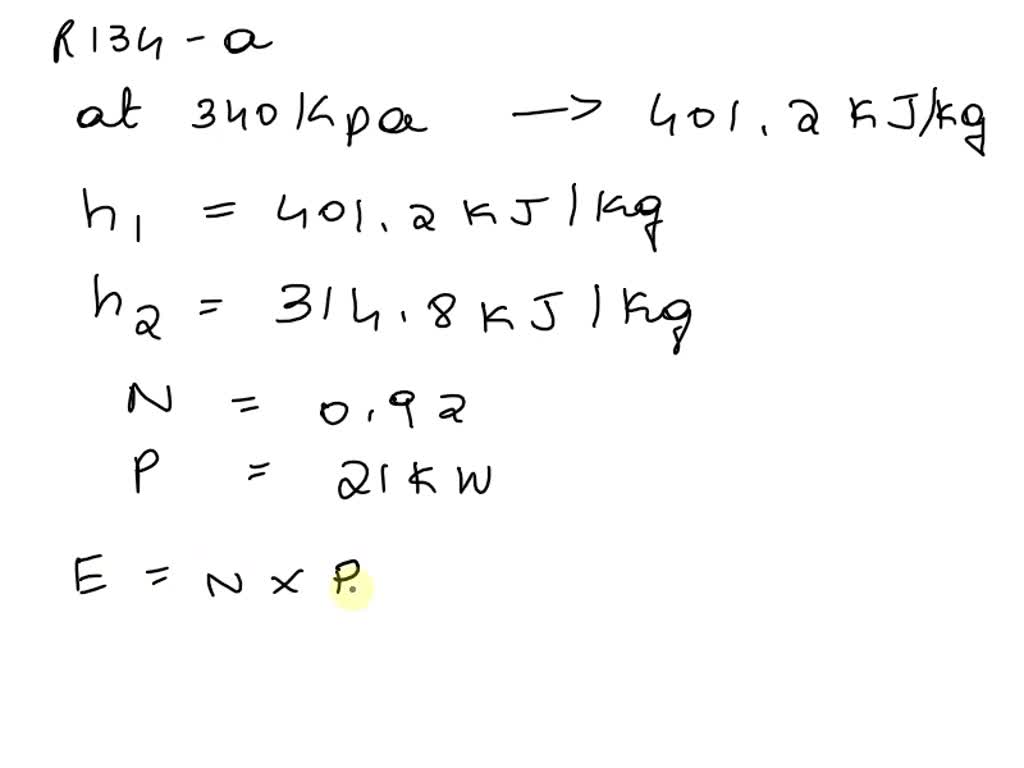 R134-a
at 340 Kpa —> 401.2 KJ/kg
h1 = 401.2 KJ/kg
h2 = 314.8 KJ/kg
N = 0.92
P = 21 KW
E = N x P.